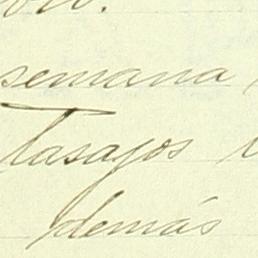 semana
Tasajos
demás